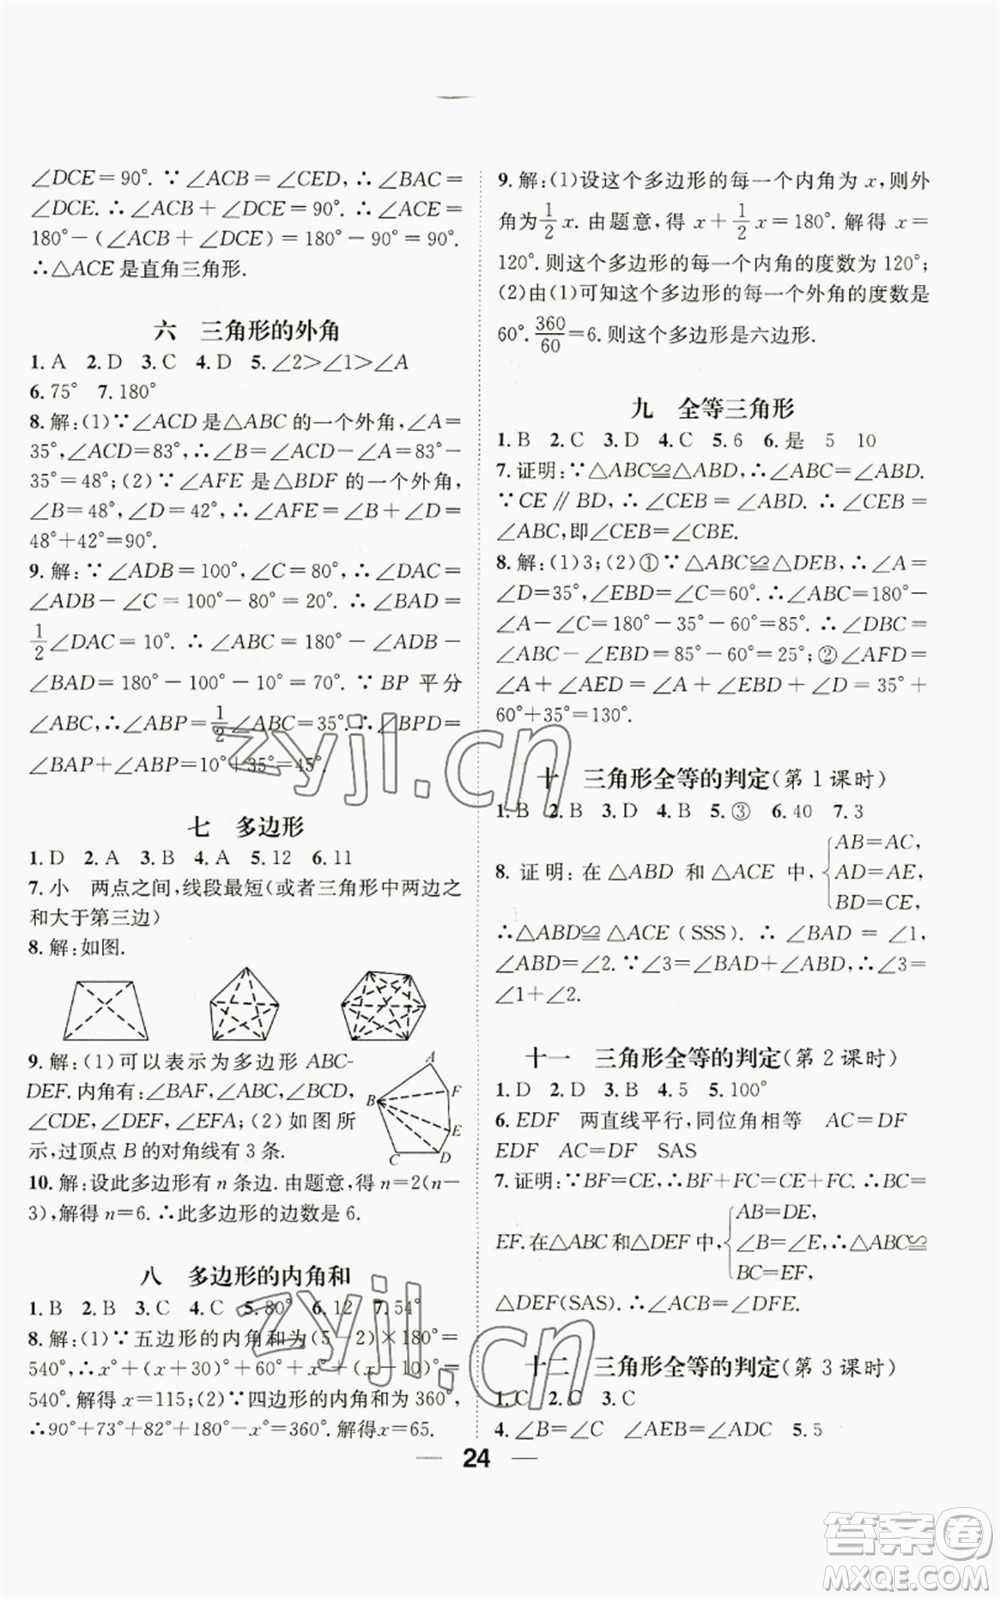 ∠DCE=90°. ∵ ∠ACB = ∠CED, ∴ ∠BAC =
∠DCE. ∴ ∠ACB + ∠DCE = 90°. ∴ ∠ACE =
180°-(∠ACB + ∠DCE) = 180° - 90° = 90°.
∴△ACE 是直角三角形.
六 三角形的外角
1. A 2. D 3. C 4. D 5. ∠2>∠1>∠A
6. 75° 7. 180°
8. 解:(1)∵∠ACD是△ABC的一个外角,∠A=
35°,∠ACD=83°,∴∠B=∠ACD-∠A=83°-
35°=48°;(2)∵∠AFE 是△BDF的一个外角,
∠B=48°,∠D=42°,∴∠AFE=∠B+∠D=
48°+42°=90°.
9. 解:∵∠ADB=100°,∠C=80°,∴∠DAC=
∠ADB-∠C=100°-80°=20°. ∴∠BAD=
1/2∠DAC=10°. ∴ ∠ABC=180°-∠ADB-
∠BAD=180°-100°-10°=70°. ∵ BP 平分
∠ABC,∴∠ABP=1/2∠ABC=35°. ∴∠BPD=
∠BAP+∠ABP=10°+35°=45°.
七 多边形
1. D 2. A 3. B 4. A 5. 12 6. 11
7. 小 两点之间,线段最短(或者三角形中两边之
和大于第三边)
8. 解:如图.
9. 解:(1)可以表示为多边形 ABC-
DEF. 内角有:∠BAF,∠ABC,∠BCD,
∠CDE,∠DEF,∠EFA;(2)如图所
示,过顶点 B 的对角线有 3 条.
A
B
F
E
C
D
10. 解:设此多边形有 n 条边. 由题意,得 n=2(n-
3),解得 n=6. ∴此多边形的边数是 6.
八 多边形的内角和
1. B 2. B 3. C 4. C 5. 80° 6. 12 7. 54°
8. 解:(1)∵五边形的内角和为(5-2)×180°=
540°,∴x°+(x+30)°+60°+x°+(x-10)°=
540°. 解得 x=115;(2)∵四边形的内角和为360°,
∴90°+73°+82°+180°-x°=360°. 解得 x=65.
9. 解:(1)设这个多边形的每一个内角为 x,则外
角为1/2x. 由题意,得 x+1/2x=180°. 解得 x=
120°. 则这个多边形的每一个内角的度数为 120°;
(2)由(1)可知这个多边形的每一个外角的度数是
60°. 360/60=6. 则这个多边形是六边形.
九 全等三角形
1. B 2. C 3. D 4. C 5. 6 6. 是 5 10
7. 证明:∵△ABC≌△ABD,∴∠ABC=∠ABD.
∵CE∥BD,∴∠CEB=∠ABD. ∴∠CEB=
∠ABC,即∠CEB=∠CBE.
8. 解:(1)3;(2)①∵△ABC≌△DEB,∴∠A=
∠D=35°,∠EBD=∠C=60°. ∴∠ABC=180°-
∠A-∠C=180°-35°-60°=85°. ∴∠DBC=
∠ABC-∠EBD=85°-60°=25°;②∠AFD=
∠A+∠AED=∠A+∠EBD+∠D=35°+
60°+35°=130°.
十 三角形全等的判定(第 1 课时)
1. B 2. B 3. D 4. B 5. ③ 6. 40 7. 3
8. 证明:在 △ABD 和 △ACE 中, { AB=AC, AD=AE, BD=CE,
∴△ABD≌△ACE (SSS). ∴∠BAD=∠1,
∠ABD=∠2. ∵∠3=∠BAD+∠ABD,∴∠3=
∠1+∠2.
十一 三角形全等的判定(第 2 课时)
1. D 2. D 3. B 4. 5 5. 100°
6. EDF 两直线平行,同位角相等 AC=DF
EDF AC=DF SAS
7. 证明:∵BF=CE,∴BF+FC=CE+FC. ∴BC=
EF. 在△ABC和△DEF中, { AB=DE, ∠B=∠E, BC=EF, ∴△ABC≌
△DEF(SAS). ∴∠ACB=∠DFE.
十二 三角形全等的判定(第 3 课时)
1. C 2. C 3. C
4. ∠B=∠C ∠AEB=∠ADC 5. 5
24
zyjl.cn
zyjl.cn
答案卷
MXQE.COM